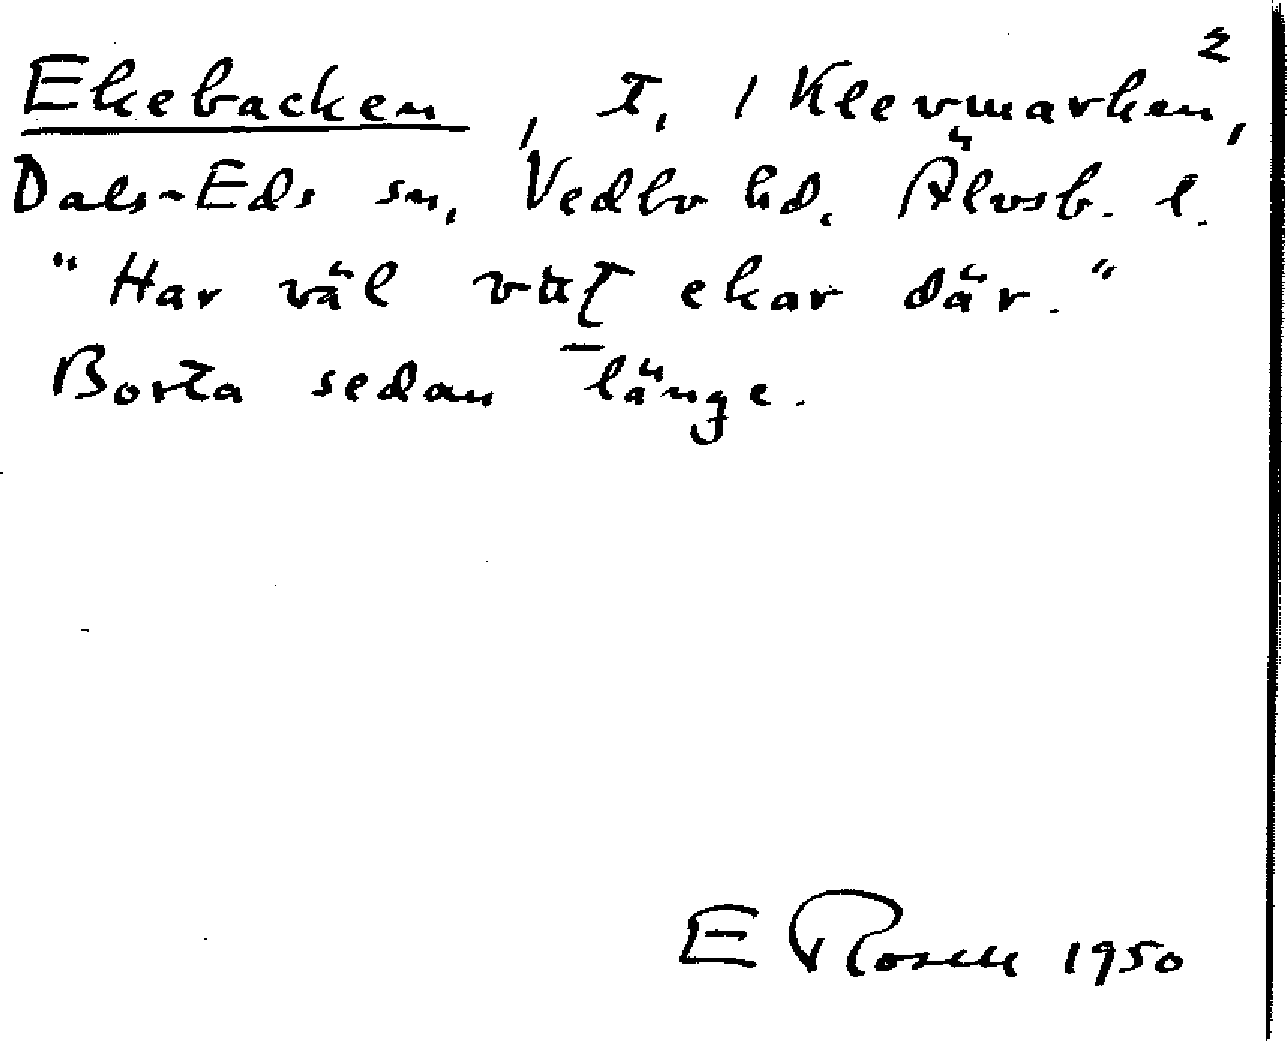 2
Ekebacken, t. i Klevmarken,
Dals-Eds sn, Vedbo hd. Älvsb. l.
"Har väl ekar där."
Borta sedan länge.
E Rosell 1950